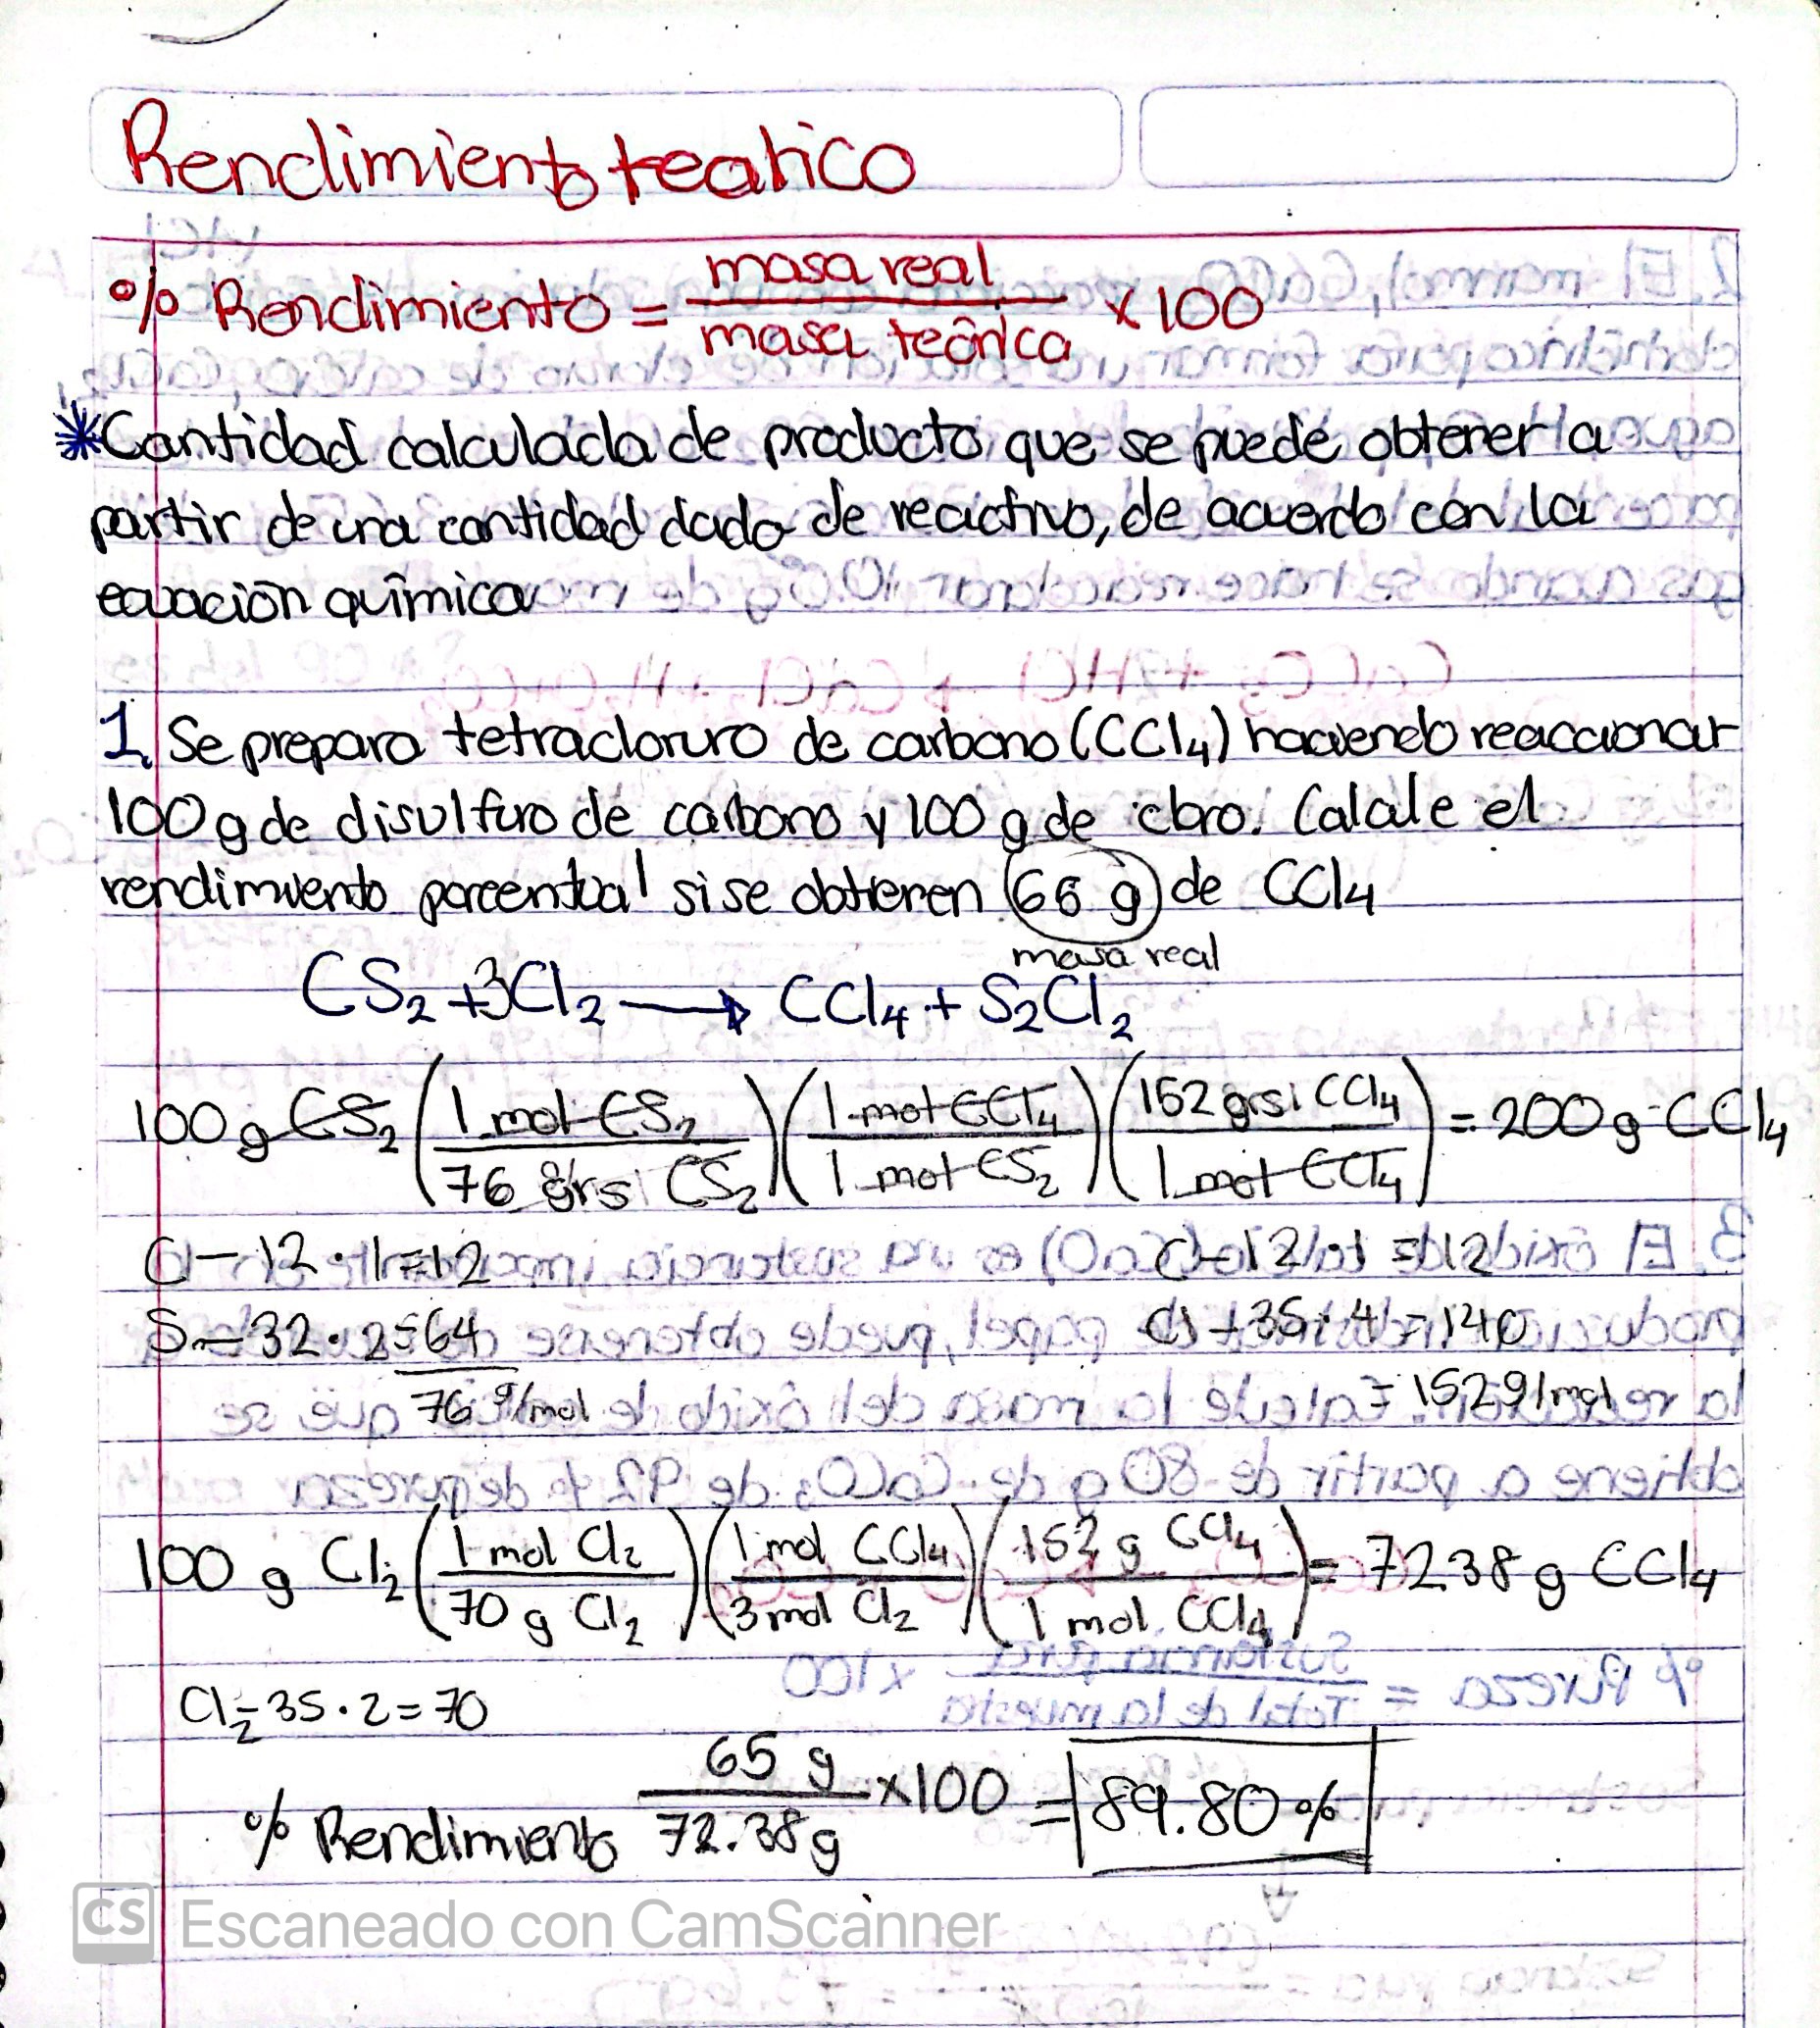 Rendimiento teatico
% Rendimiento = masa real / masa teórica x 100
*Cantidad calculada de producto que se puede obtener a
partir de una cantidad dada de reactivo, de acuerdo con la
ecuación química
1. Se prepara tetracloruro de carbono (CCl4) haciendo reaccionar
100 g de disulfuro de carbono y 100 g de cloro. Calcule el
rendimiento porcentual si se obtienen 65 g de CCl4
masa real
CS2 + 3Cl2 → CCl4 + S2Cl2
100 g CS2 (1 mol CS2 / 76 grs CS2) (1 mol CCl4 / 1 mol CS2) (152 grs CCl4 / 1 mol CCl4) = 200 g CCl4
C - 12 · 1 = 12 C - 12 · 1 = 12
S - 32 · 2 = 64 Cl - 35 · 4 = 140
76 g/mol = 152 g/mol
100 g Cl2 (1 mol Cl2 / 70 g Cl2) (1 mol CCl4 / 3 mol Cl2) (152 g CCl4 / 1 mol CCl4) = 72.38 g CCl4
Cl2 - 35 · 2 = 70
% Rendimiento 65 g / 72.38 g x 100 = 89.80 %
CS Escaneado con CamScanner